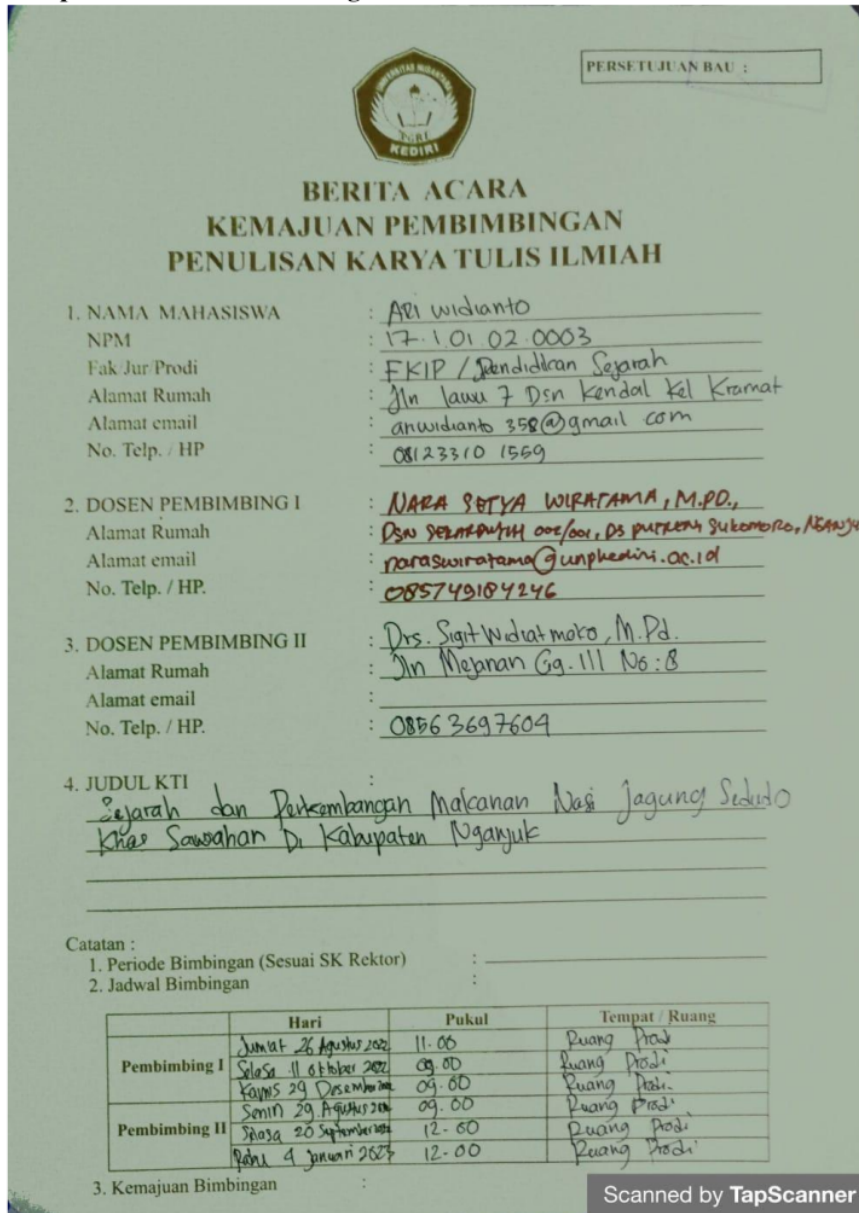 PERSETUJUAN BAU :
UNIVERSITAS NUSANTARA
PGRI
KEDIRI
BERITA ACARA
KEMAJUAN PEMBIMBINGAN
PENULISAN KARYA TULIS ILMIAH
1. NAMA MAHASISWA : ARI widianto
NPM : 17.1.01.02.0003
Fak/Jur/Prodi : FKIP / Pendidikan Sejarah
Alamat Rumah : Jln lawu 7 Dsn Kendal Kel Kramat
Alamat email : ariwidianto 358@gmail com
No. Telp. / HP : 0812 3310 1559
2. DOSEN PEMBIMBING I : NARA SETYA WIRATAMA, M.PD.,
Alamat Rumah : DSN 002/001, DS Sukomoro,
Alamat email : naraswiratama@unpkediri.ac.id
No. Telp. / HP. : 085749184246
3. DOSEN PEMBIMBING II : Drs. Sigit Widiatmoko, M.Pd.
Alamat Rumah : Jln Mejanan Gg. III No : 8
Alamat email :
No. Telp. / HP. : 0856 3697604
4. JUDUL KTI :
Sejarah dan Perkembangan Makanan Nasi Jagung Sedudo
Khas Sawahan Di Kabupaten Nganjuk
Catatan :
1. Periode Bimbingan (Sesuai SK Rektor) :
2. Jadwal Bimbingan :
Hari Pukul Tempat / Ruang
Jumat 26 Agustus 2022 11.00 Ruang Prodi
Pembimbing I Selasa 11 oktober 2022 09.00 Ruang Prodi
Kamis 29 Desember 2022 09.00 Ruang Prodi
Senin 29 Agustus 09.00 Ruang Prodi
Pembimbing II Selasa 20 September 2022 12.00 Ruang Prodi
Rabu 4 Januari 2023 12.00 Ruang Prodi
3. Kemajuan Bimbingan :
Scanned by TapScanner